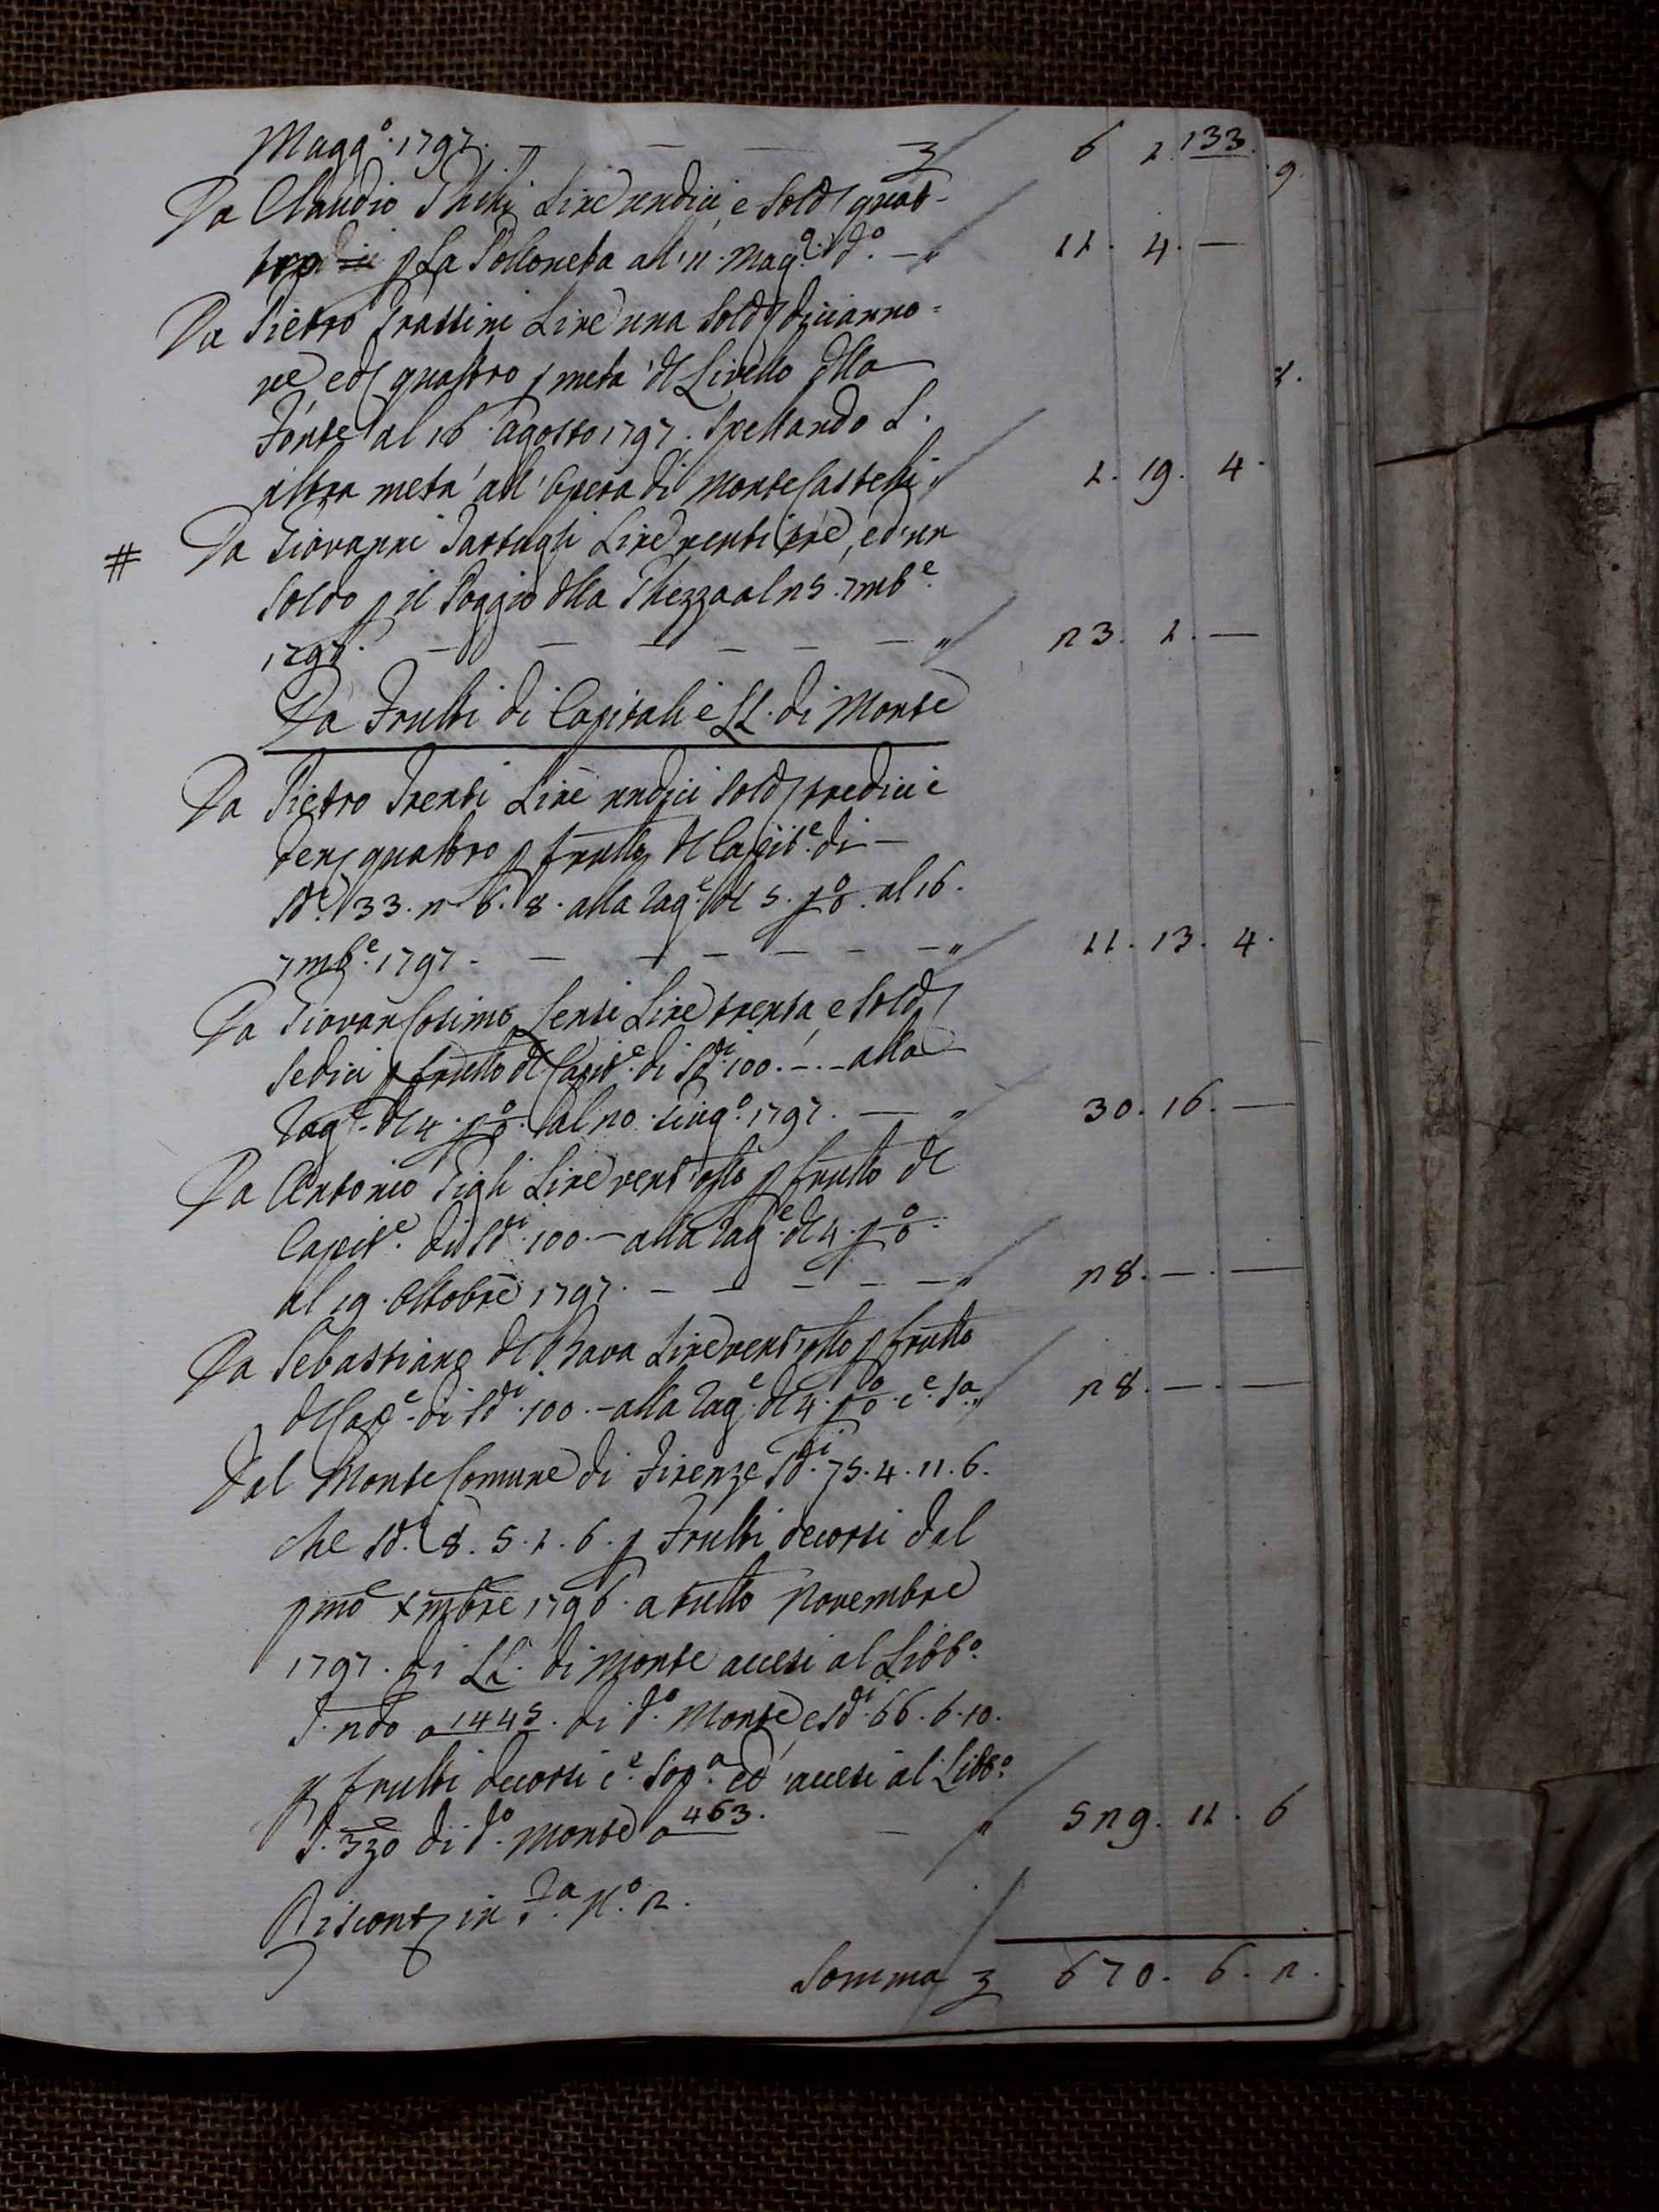 133.
Magg.º 1797. — — — 6 1
Da Claudio Lire undici, e Sold quat-
tro p La Polloneta al 11. Mag.º dº. — " 11. 4. —
Da Pietro Grassini Lire una Sold dicianno=
ve, e d quattro p metà del Livello della
Fonte al 16. Agosto 1797. Spettando L'
altra metà all'Opera di Monte Castelli " 1. 19. 4.
# Da Giovanni Lire venti tre, ed un
Soldo p il Poggio della al 25. 7mb.e
1797. — — — — — — " 23. 1. —
Da Frutti di Capitali e LL. di Monte
Da Pietro Trenti Lire undici Sold tredici e
den quattro p frutto del Capit.e di —
Sd.i 33. 2. 6. 8. alla Rag.e del 5. p % al 16.
7mb.e 1797. — — — — — — " 11. 13. 4.
Da Giovan Cosimo Lensi Lire trenta, e Sold
Sedici p frutto del Capit.e di Sd.i 100. —. — alla
Rag.e del 4. p % al 20. Giug.º 1797. — " 30. 16. —
Da Antonio Gigli Lire vent'otto p frutto del
Capit.e di Sd.i 100. — alla Rag.e del 4. p %
al 19. Ottobre 1797. — — — — — " 28. —. —
Da Sebastiano del Bava Lire vent'otto p frutto
del Cap.e di Sd.i 100. — alla Rag.e del 4. p % c.e S.a " 28. —. —
Dal Monte Comune di Firenze Sd.i 75. 4. 11. 6.
che Sd.i 8. 5. 1. 6. p Frutti decorsi dal
pmo Xmbre 1796. a tutto Novembre
1797. di LL. di Monte accesi al Libb.º
P. 2do a 1445. di d.º Monte, e Sd.i 66. 6. 10.
p frutti decorsi c.e Sop.a ed accesi al Libb.º
P. 3zo di d.º Monte a 463. — " 529. 11. 6
Riscont in F.a N.º 2.
Somma 670. 6. 2.